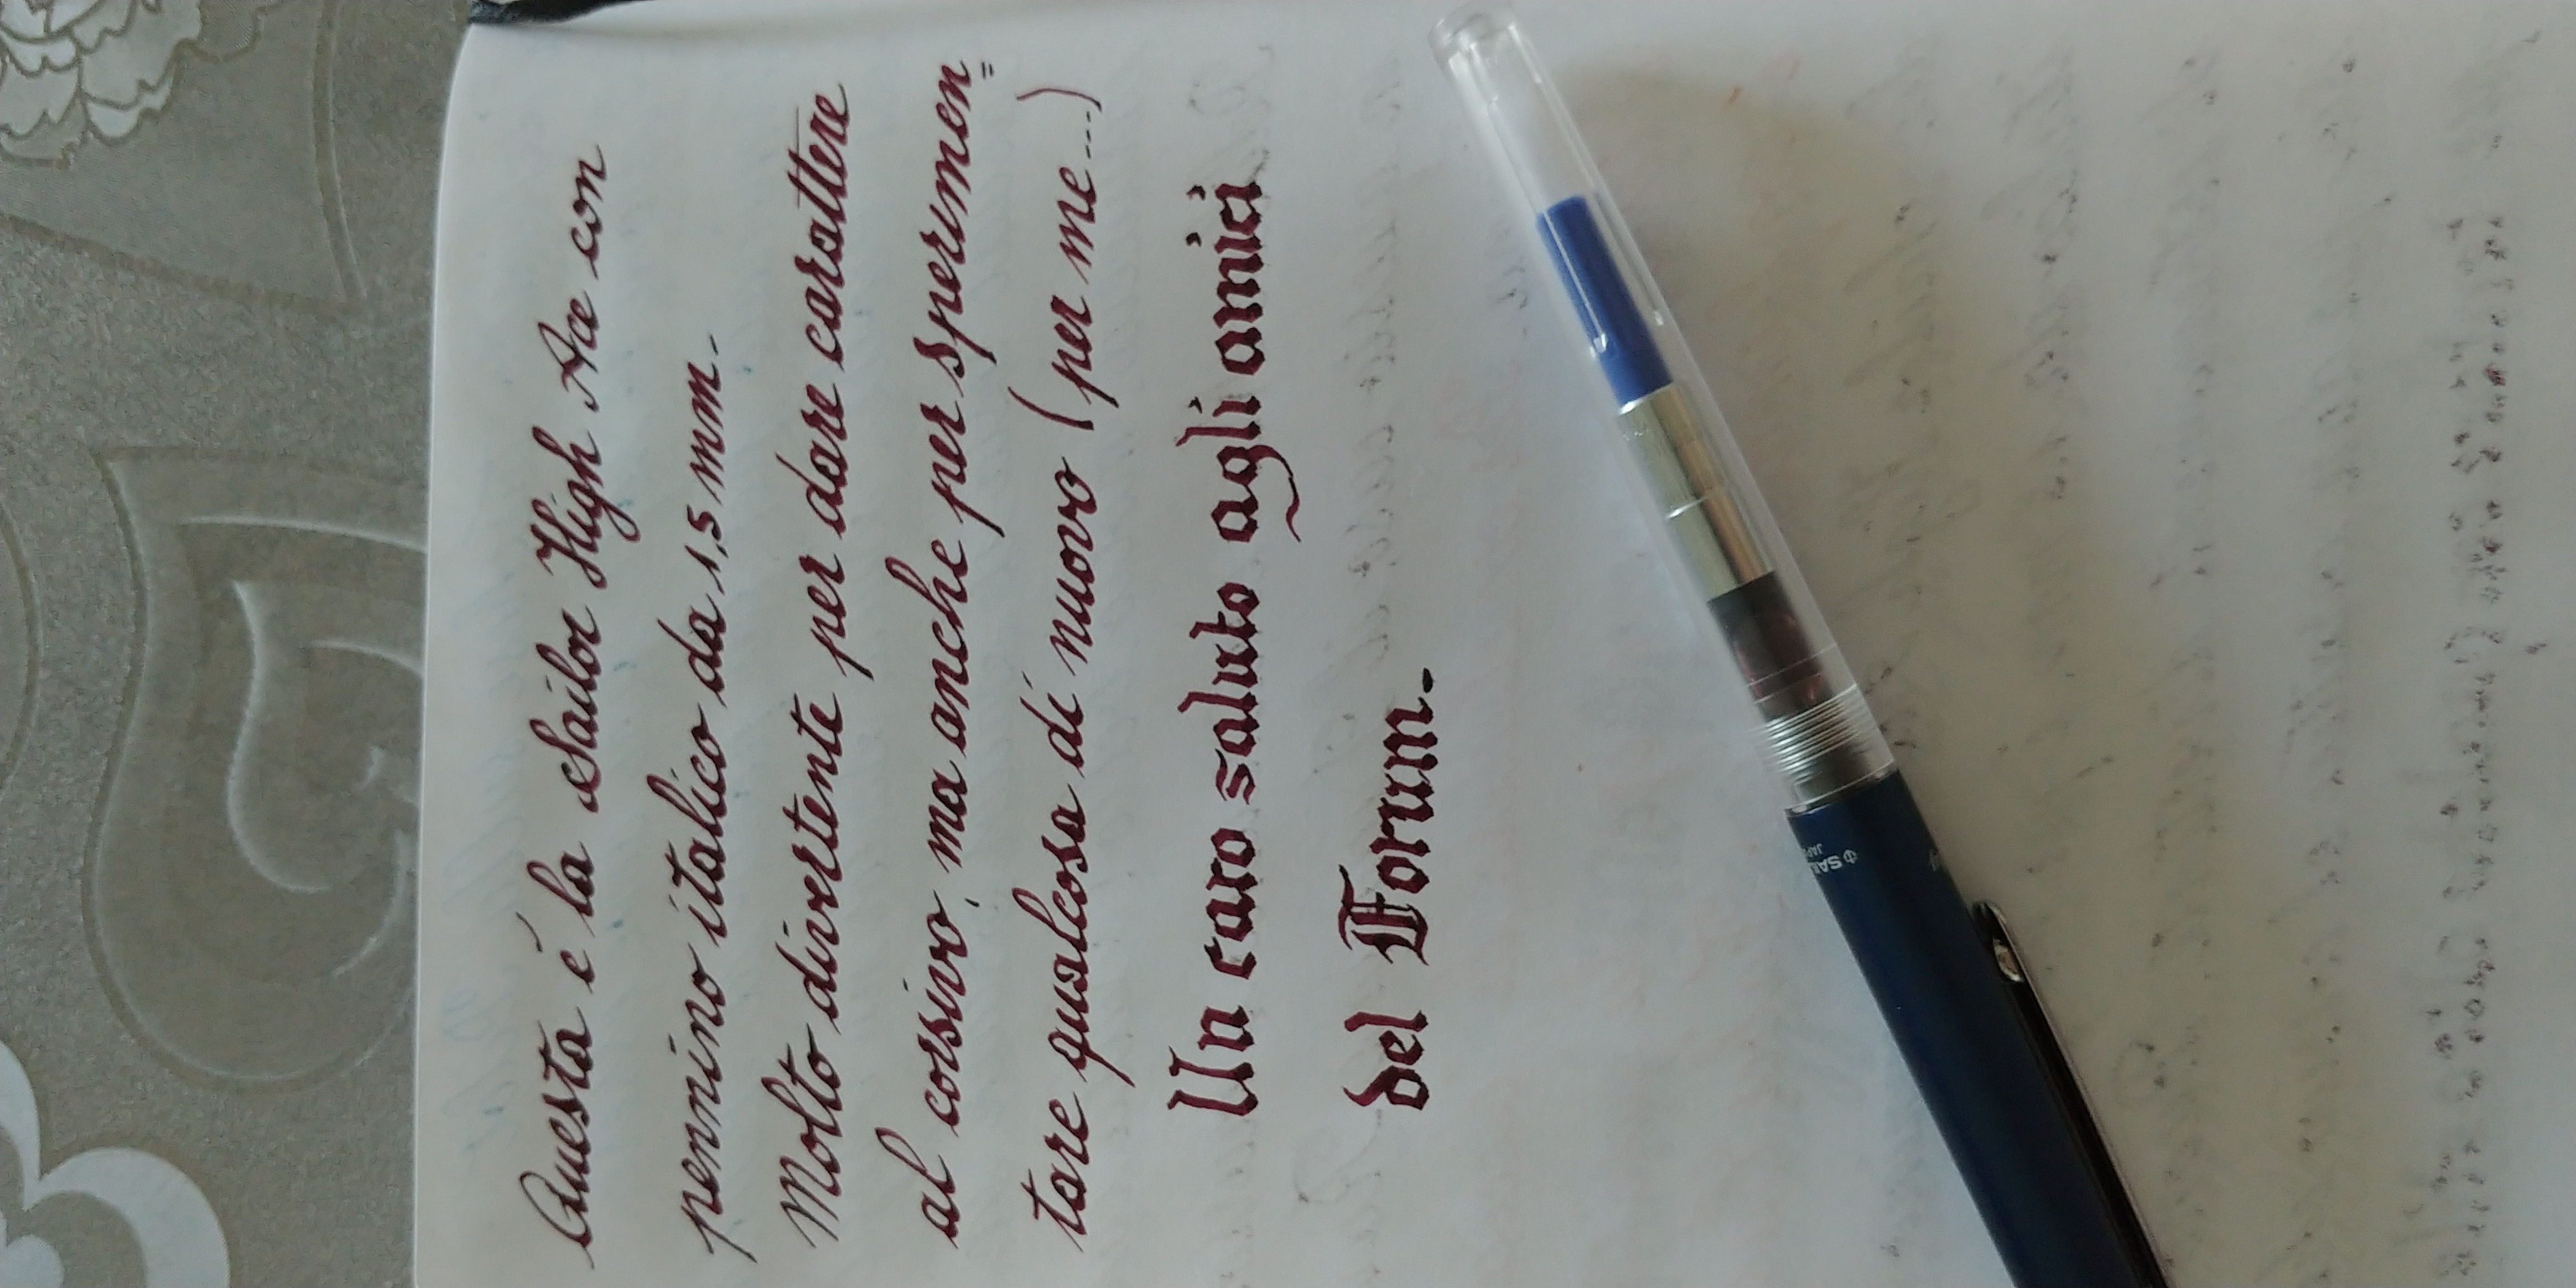 Questa é la Sailor High Ace con
pennino italico da 1,5 mm.
Molto divertente per dare carattere
al corsivo, ma anche per sperimen=
tare qualcosa di nuovo (per me....)
Un caro saluto agli amici
del Forum.